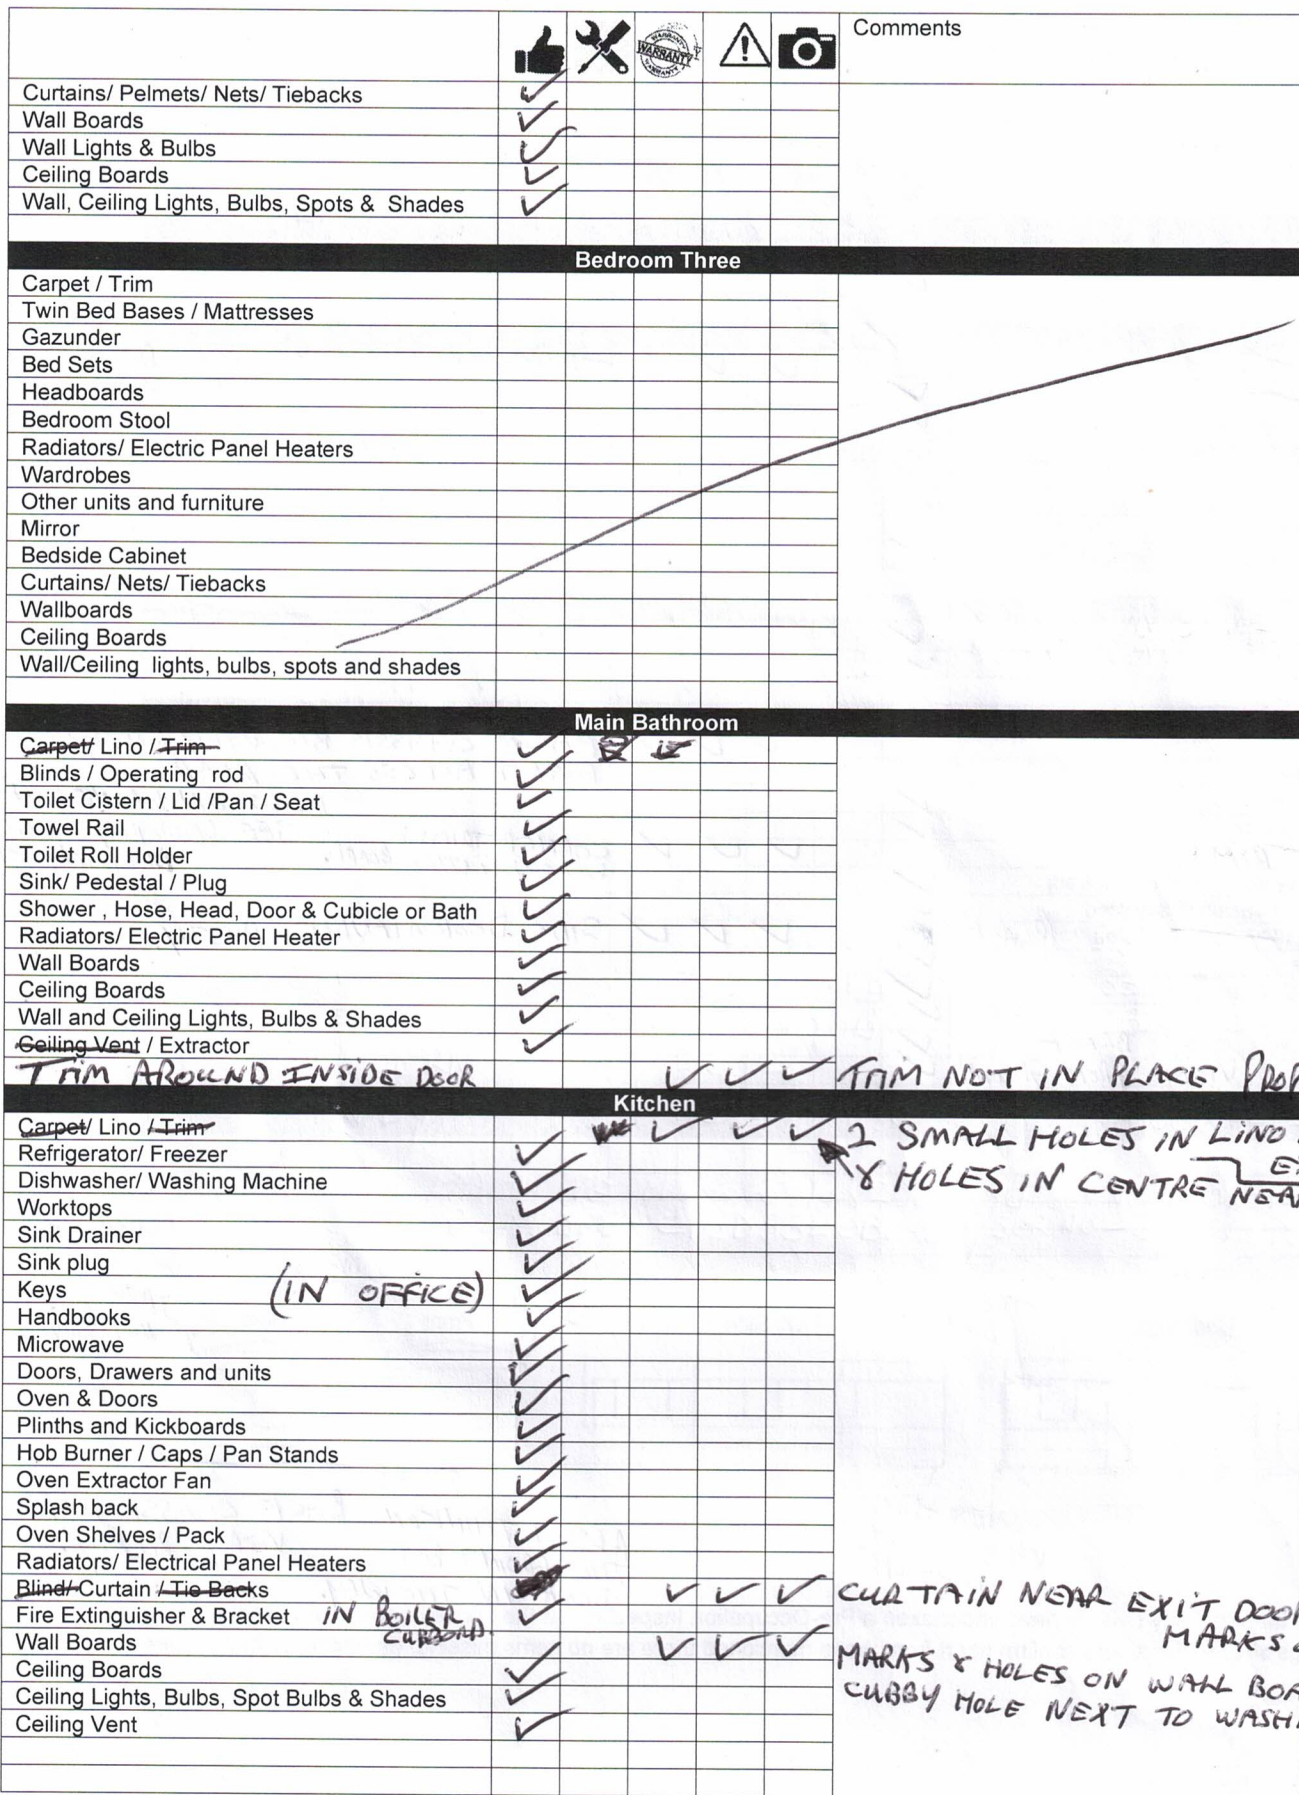 Comments
WARRANTY
Curtains/ Pelmets/ Nets/ Tiebacks
Wall Boards
Wall Lights & Bulbs
Ceiling Boards
Wall, Ceiling Lights, Bulbs, Spots & Shades
Bedroom Three
Carpet / Trim
Twin Bed Bases / Mattresses
Gazunder
Bed Sets
Headboards
Bedroom Stool
Radiators/ Electric Panel Heaters
Wardrobes
Other units and furniture
Mirror
Bedside Cabinet
Curtains/ Nets/ Tiebacks
Wallboards
Ceiling Boards
Wall/Ceiling lights, bulbs, spots and shades
Main Bathroom
Carpet/ Lino / Trim
Blinds / Operating rod
Toilet Cistern / Lid /Pan / Seat
Towel Rail
Toilet Roll Holder
Sink/ Pedestal / Plug
Shower , Hose, Head, Door & Cubicle or Bath
Radiators/ Electric Panel Heater
Wall Boards
Ceiling Boards
Wall and Ceiling Lights, Bulbs & Shades
Ceiling Vent / Extractor
TRIM AROUND INSIDE DOOR TRIM NOT IN PLACE PROP
Kitchen
Carpet/ Lino / Trim 2 SMALL HOLES IN LINO
Refrigerator/ Freezer
& HOLES IN CENTRE NEAR
Dishwasher/ Washing Machine
Worktops
Sink Drainer
Sink plug
Keys (IN OFFICE)
Handbooks
Microwave
Doors, Drawers and units
Oven & Doors
Plinths and Kickboards
Hob Burner / Caps / Pan Stands
Oven Extractor Fan
Splash back
Oven Shelves / Pack
Radiators/ Electrical Panel Heaters
Blind/ Curtain / Tie Backs CURTAIN NEAR EXIT DOOR
Fire Extinguisher & Bracket IN BOILER CUBBOARD.
MARKS
Wall Boards MARKS & HOLES ON WALL BOA
Ceiling Boards
CUBBY HOLE NEXT TO WASHI
Ceiling Lights, Bulbs, Spot Bulbs & Shades
Ceiling Vent